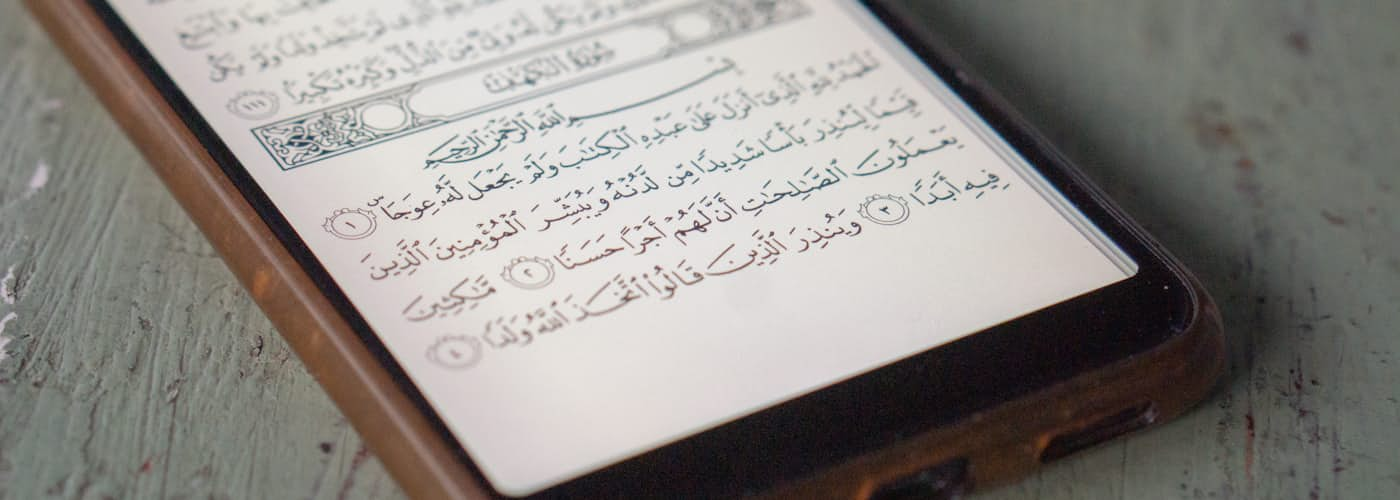 بِهَا وَٱبْتَغِ
ٱلَّذِى لَمْ يَتَّخِذْ وَلَدًا وَلَمْ يَكُن
وَلَمْ يَكُن لَّهُۥ وَلِىٌّ مِّنَ ٱلذُّلِّ وَكَبِّرْهُ تَكْبِيرًۢا ١١١
سُورَةُ الكَهْفِ
بِسْمِ ٱللَّهِ ٱلرَّحْمَٰنِ ٱلرَّحِيمِ
ٱلْحَمْدُ لِلَّهِ ٱلَّذِىٓ أَنزَلَ عَلَىٰ عَبْدِهِ ٱلْكِتَٰبَ وَلَمْ يَجْعَل لَّهُۥ عِوَجَاۜ ١
قَيِّمًا لِّيُنذِرَ بَأْسًا شَدِيدًا مِّن لَّدُنْهُ وَيُبَشِّرَ ٱلْمُؤْمِنِينَ ٱلَّذِينَ
يَعْمَلُونَ ٱلصَّٰلِحَٰتِ أَنَّ لَهُمْ أَجْرًا حَسَنًا ٢ مَّٰكِثِينَ
فِيهِ أَبَدًا ٣ وَيُنذِرَ ٱلَّذِينَ قَالُوا۟ ٱتَّخَذَ ٱللَّهُ وَلَدًا ٤